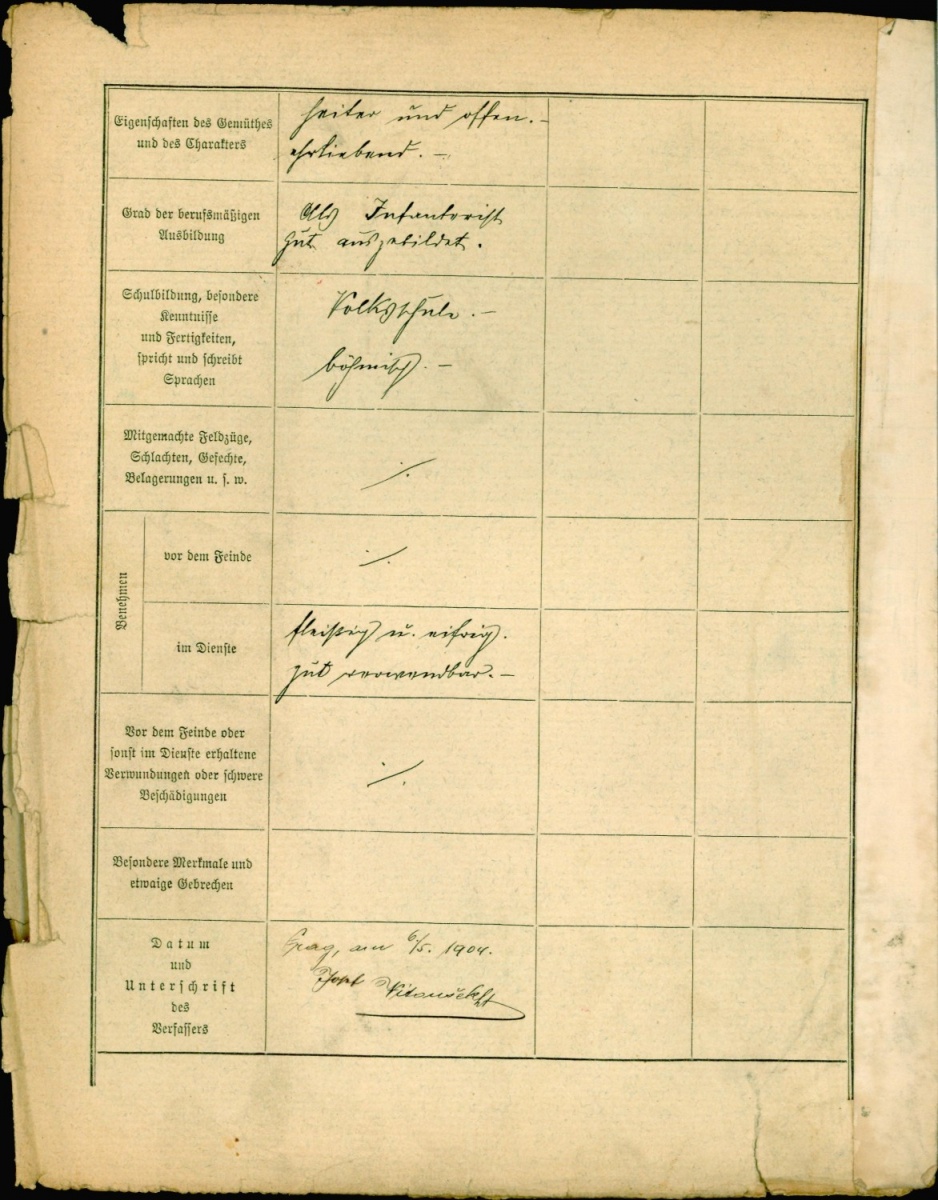 Eigenschaften des Gemüthes
und des Charakters
heiter und offen. –
ehrliebend. –
Grad der berufsmäßigen
Ausbildung
Als Infanterist
gut ausgebildet.
Schulbildung, besondere
Kenntnisse
und Fertigkeiten,
spricht und schreibt
Sprachen
Volksschule. –
böhmisch. –
Mitgemachte Feldzüge,
Schlachten, Gefechte,
Belagerungen u. s. w.
./.
Benehmen
vor dem Feinde
./.
im Dienste
fleißig u. eifrig.
gut verwendbar. –
Vor dem Feinde oder
sonst im Dienste erhaltene
Verwundungen oder schwere
Beschädigungen
./.
Besondere Merkmale und
etwaige Gebrechen
Datum
und
Unterschrift
des
Verfassers
Prag, am 6/5. 1904.